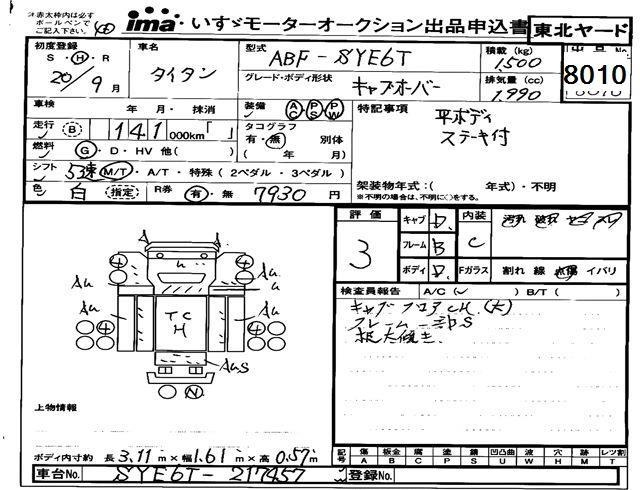 注.赤太枠内は必ず ima いすゞモーターオークション出品申込書 東北ヤード
ボールペンで
ご記入下さい。
初度登録 車名 型式 ABF-SYE6T 積載 (kg) 1,500
S・H・R タイタン グレード・ボディ形状 排気量 (cc) 8010
20/9月 キャブオーバー 1,990
車検 年 月・抹消 装備 AC PS PW 特記事項
走行 B 141 000km「 」 タコグラフ 平ボディ
有・無 別体 ステーキ付
燃料 G・D・HV 他( ) ( 年 月)
シフト 5速 M/T・A/T・特殊 (2ペダル・3ペダル) 架装物年式:( 年式)・不明
色 白 指定 R券 有・無 7930円 ※不明の場合は、不明に○をする。
評価 キャブ D 内装
3 フレーム B C
ボディ D Fガラス 割れ 線 点傷 イバリ
検査員報告 A/C(✓) B/T( )
キャブフロアCH.(大)
フレーム一部S
Au
Au
u
Au
Au
T C
H
AuS
N
上物情報
ボディ内寸約 長3.11m×幅1.61m×高0.57m
記号 傷A 板金B 腐C 塗P 錆S 凹凸曲U 波W 穴H 跡M レツ割T
車台No. SYE6T-217457 登録No.